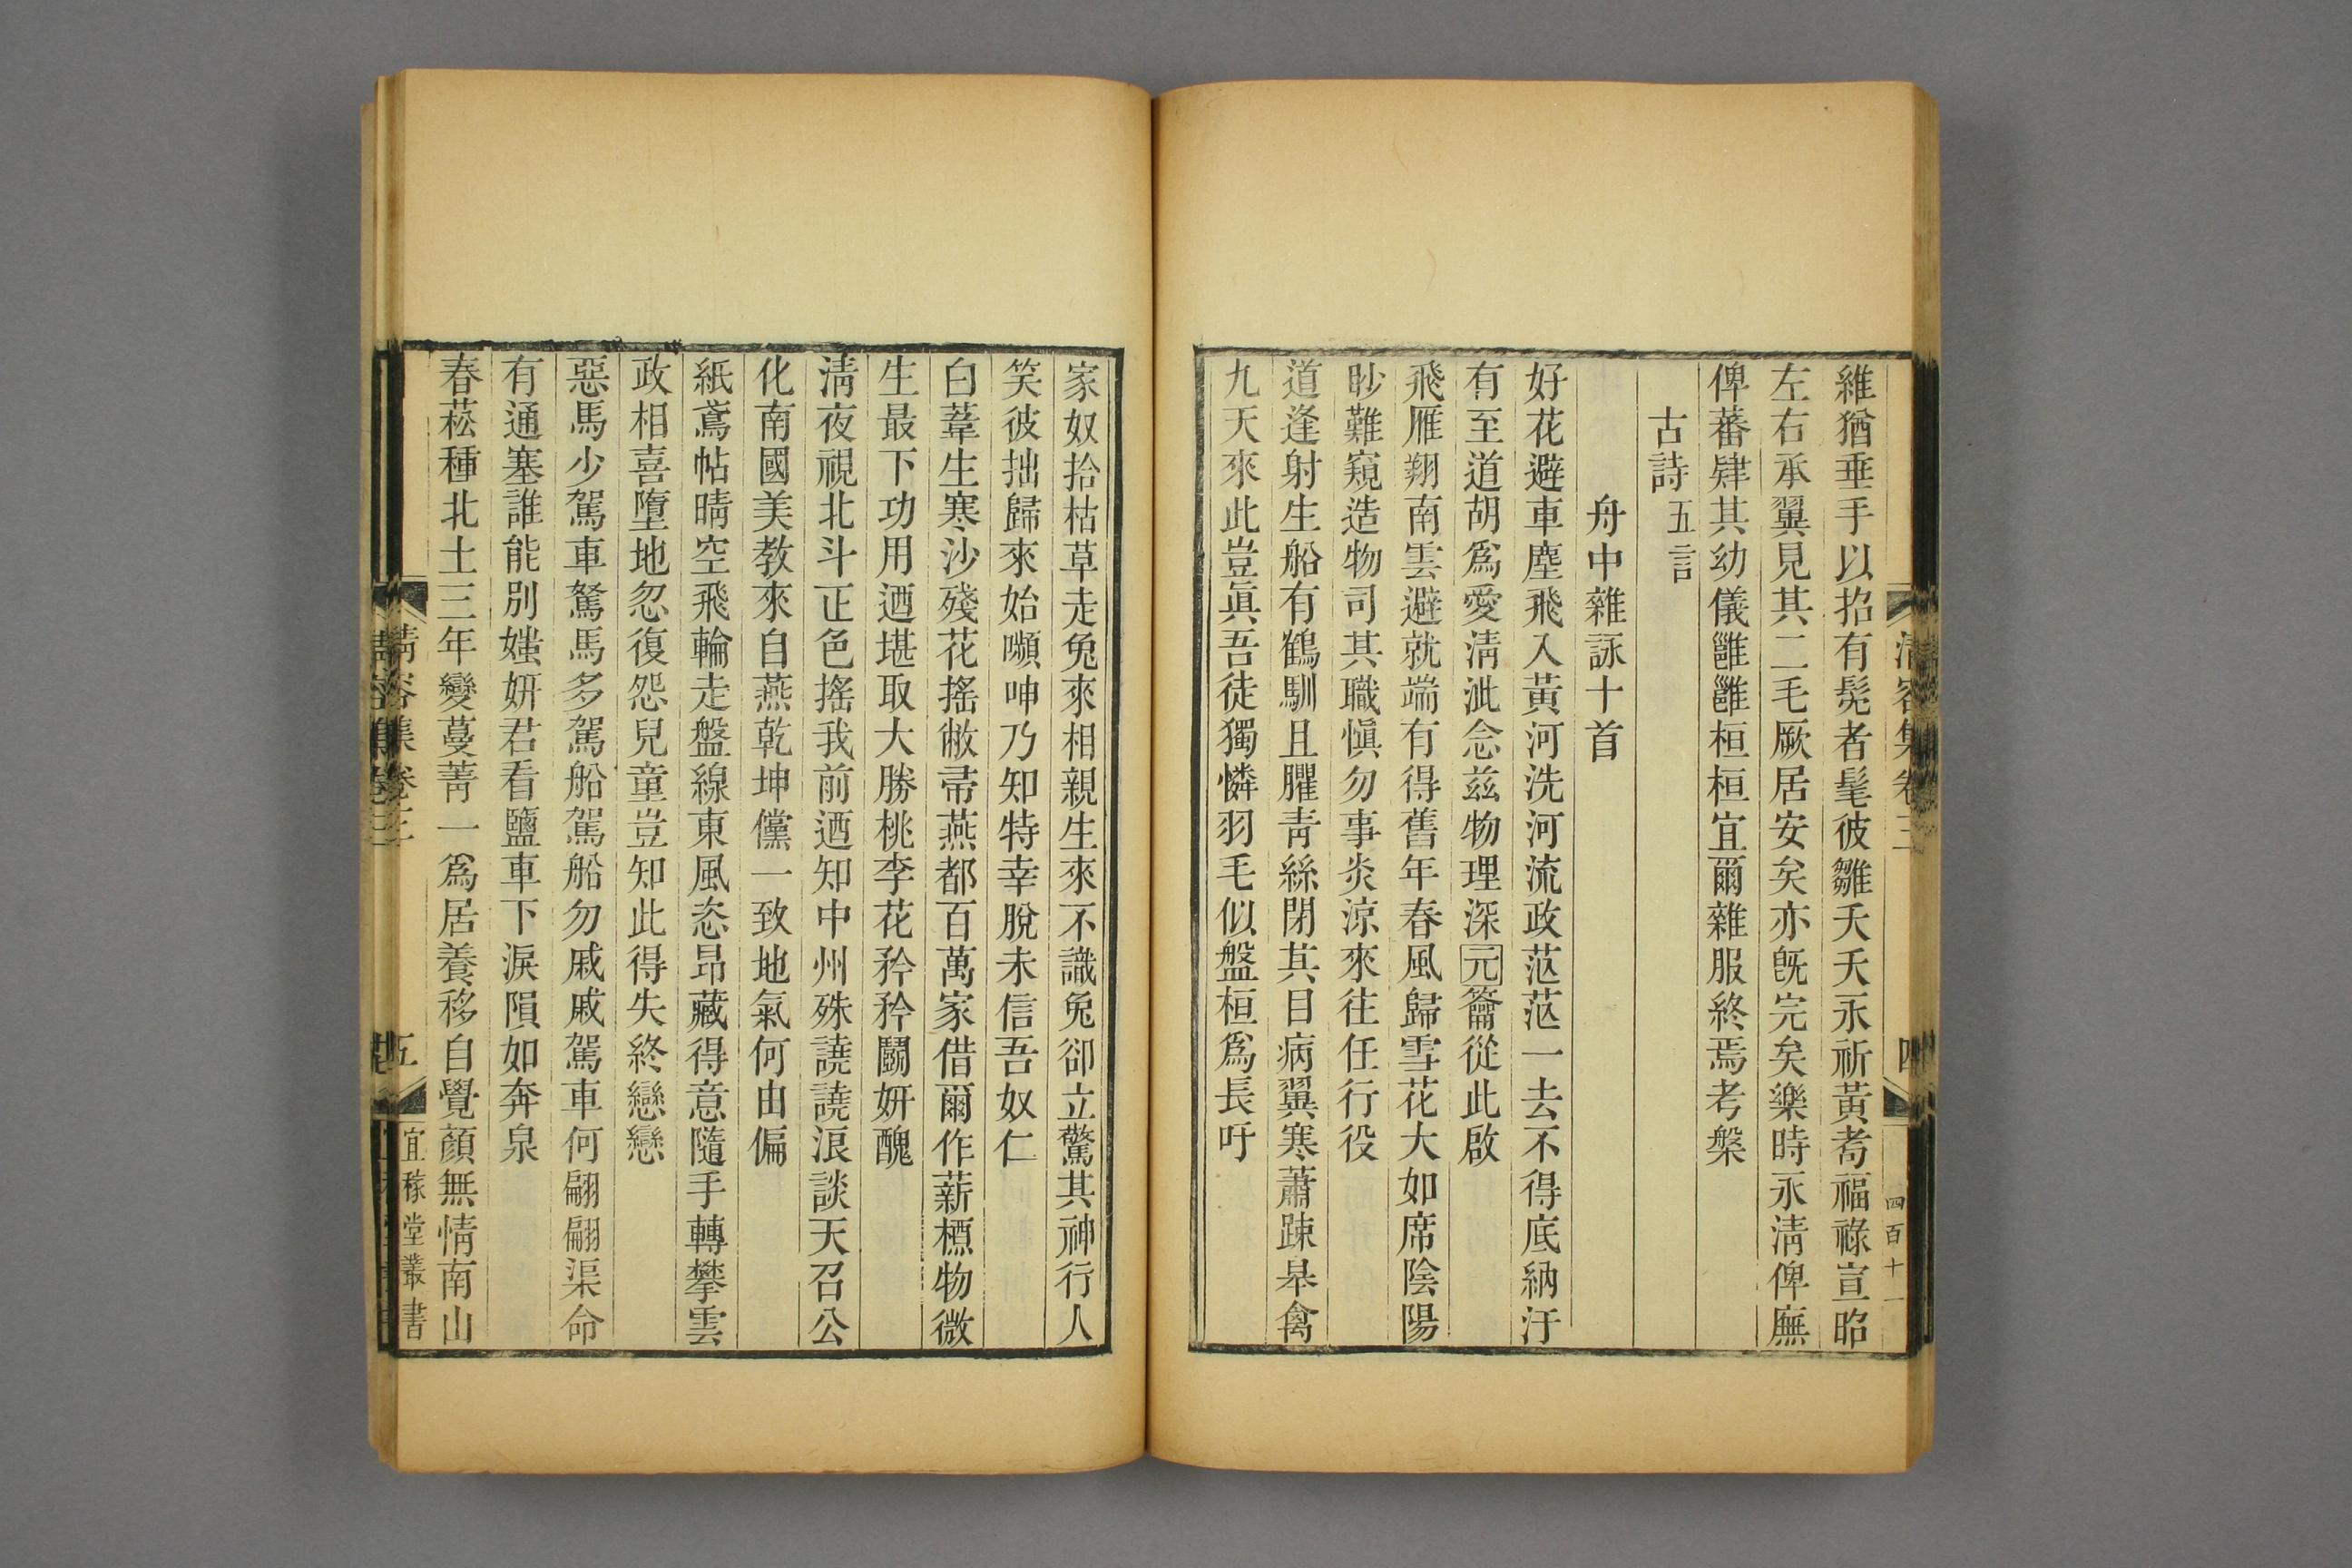 清容集卷三
四
四百十一
維猶垂手以招有髧者髦彼雛夭夭永祈黃耇福祿宣昭
左右承翼見其二毛厥居安矣亦旣完矣樂時永淸俾廡
俾蕃肄其幼儀雝雝桓桓宜爾雜服終焉考槃
古詩五言
舟中雜詠十首
好花避車塵飛入黃河洗河流政茫茫一去不得底納汙
有至道胡爲愛淸泚念兹物理深元籥從此啟
飛雁翔南雲避就端有得舊年春風歸雪花大如席陰陽
眇難窺造物司其職愼勿事炎涼來往任行役
道逢射生船有鶴馴且臞靑絲閉其目病翼寒蕭疎杲禽
九天來此豈眞吾徒獨憐羽毛似盤桓爲長吁
家奴拾枯草走兔來相親生來不識兔卻立驚其神行人
笑彼拙歸來始嚬呻乃知特幸脫未信吾奴仁
白葦生寒沙殘花搖敝帚燕都百萬家借爾作薪槱物微
生最下功用迺堪取大勝桃李花矜矜鬭妍醜
淸夜視北斗正色搖我前迺知中州殊譊譊浪談天召公
化南國美教來自燕乾坤儻一致地氣何由偏
紙鳶帖晴空飛輪走盤線東風恣昂藏得意隨手轉攀雲
政相喜墮地忽復怨兒童豈知此得失終戀戀
惡馬少駕車駑馬多駕船駕船勿戚戚駕車何翩翩渠命
有通塞誰能別媸妍君看鹽車下淚隕如奔泉
春菘種北土三年變蔓菁一爲居養移自覺顏無情南山
清容集卷三
五
宜稼堂叢書